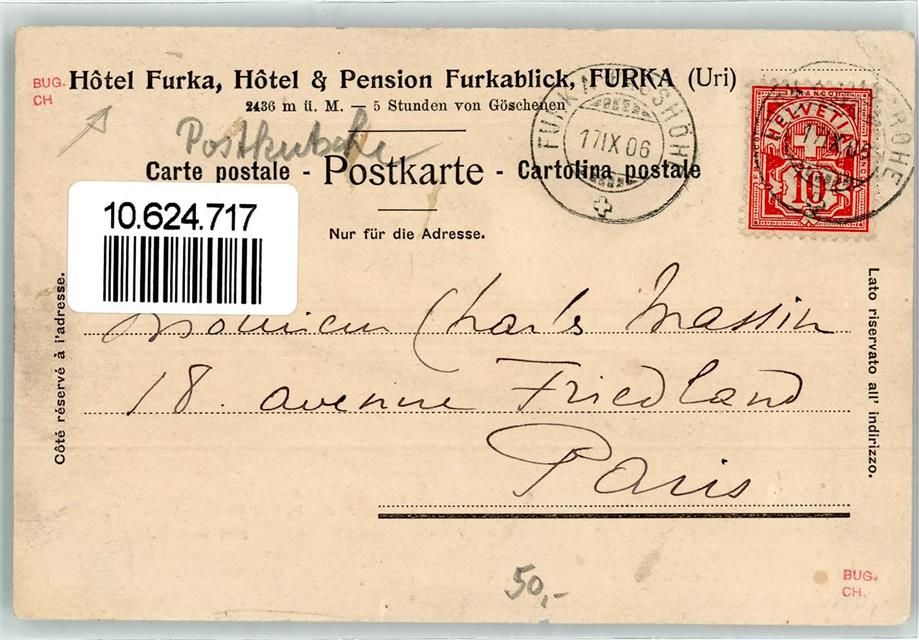 BUG.
CH
Hôtel Furka, Hôtel & Pension Furkablick, FURKA (Uri)
2436 m ü. M. — 5 Stunden von Göschenen
Postkutsche
Carte postale - Postkarte - Cartolina postale
Nur für die Adresse.
FURKA
17 IX 06
HELVETIA
FRANCO
10
17 IX 06
10.624.717
Côté réservé à l'adresse.
Lato riservato all' indirizzo.
Monsieur Charles Massin
18. avenue Friedland
Paris
50,-
BUG.
CH.